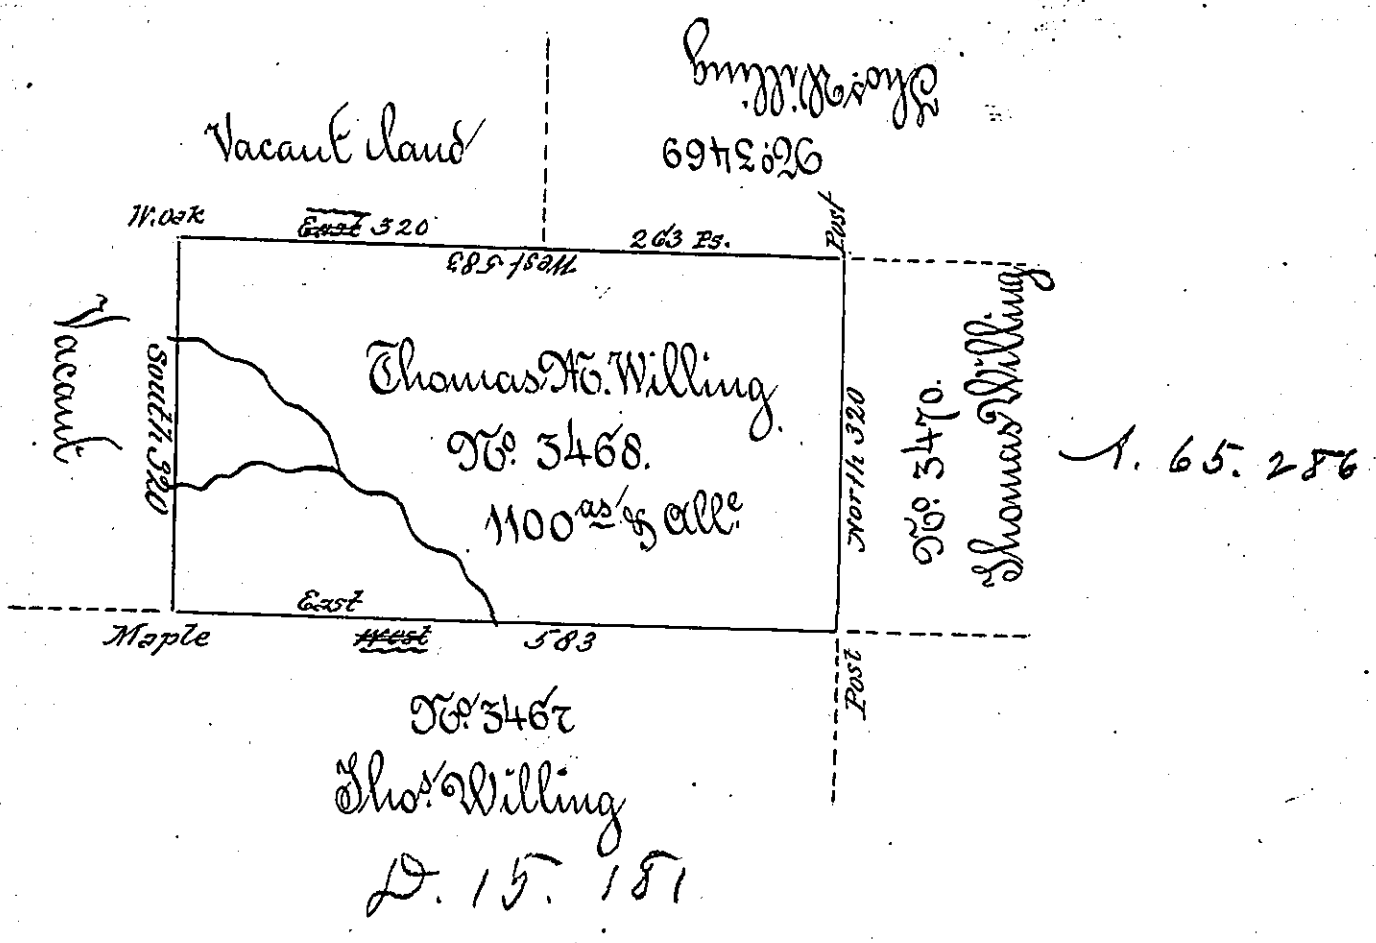 Thos. Willing
No. 3469
Vacant land
W. Oak
East 320
263 Ps.
Post
West 583
Vacant
South 320
Thomas M. Willing
No. 3468.
1100 as & Alle.
North 320
No. 3470.
Thomas Willing
1. 65. 286
East
Maple
West
583
Post
No. 3467
Thos. Willing
D. 15. 181